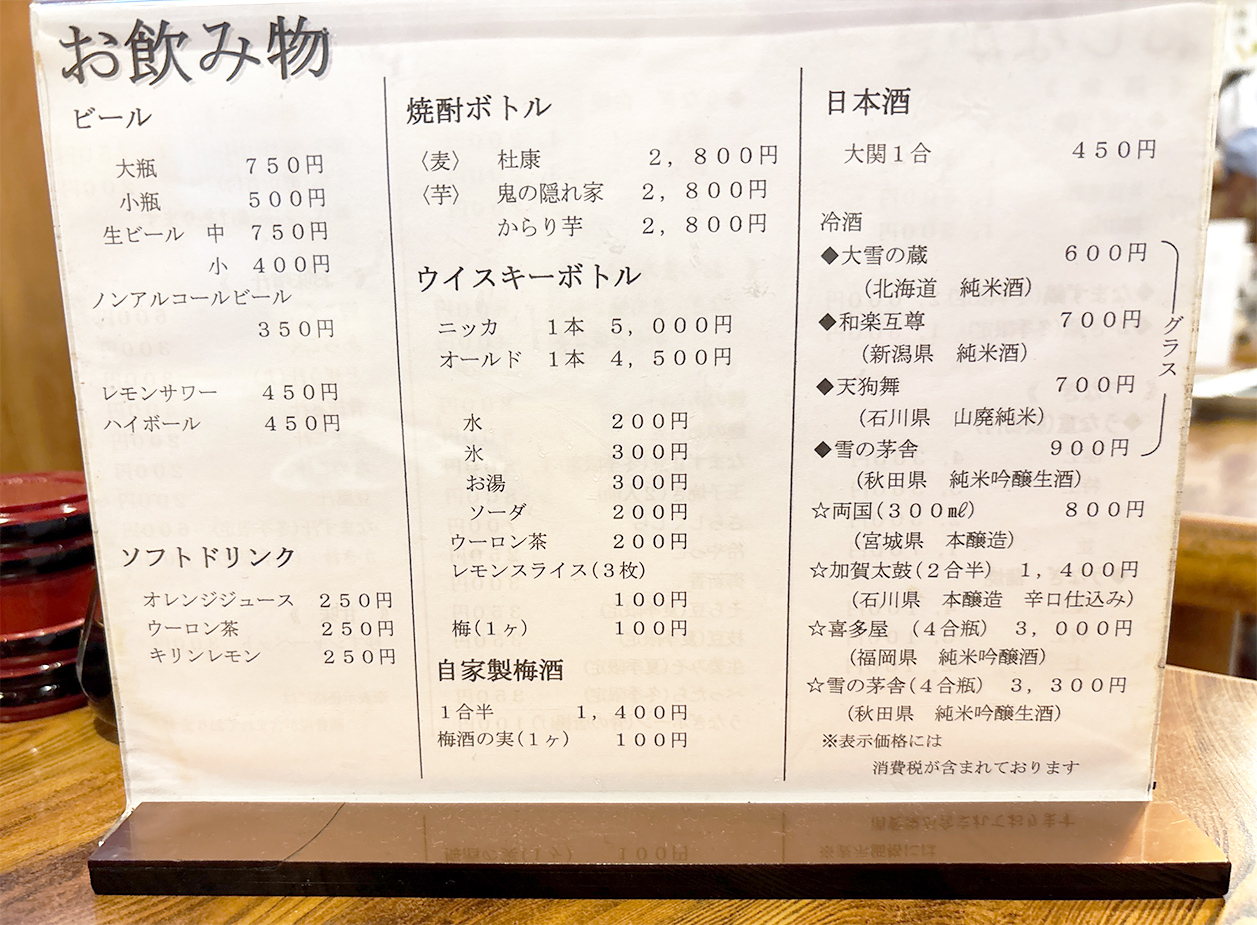 お飲み物
ビール
大瓶 750円
小瓶 500円
生ビール 中 750円
小 400円
ノンアルコールビール
350円
レモンサワー 450円
ハイボール 450円
ソフトドリンク
オレンジジュース 250円
ウーロン茶 250円
キリンレモン 250円
焼酎ボトル
〈麦〉 杜康 2,800円
〈芋〉 鬼の隠れ家 2,800円
からり芋 2,800円
ウイスキーボトル
ニッカ 1本 5,000円
オールド 1本 4,500円
水 200円
氷 300円
お湯 300円
ソーダ 200円
ウーロン茶 200円
レモンスライス(3枚)
100円
梅(1ヶ) 100円
自家製梅酒
1合半 1,400円
梅酒の実(1ヶ) 100円
日本酒
大関1合 450円
冷酒
◆大雪の蔵 600円
(北海道 純米酒)
◆和楽互尊 700円
(新潟県 純米酒)
グラス
◆天狗舞 700円
(石川県 山廃純米)
◆雪の茅舎 900円
(秋田県 純米吟醸生酒)
☆両国(300㎖) 800円
(宮城県 本醸造)
☆加賀太鼓(2合半) 1,400円
(石川県 本醸造 辛口仕込み)
☆喜多屋 (4合瓶) 3,000円
(福岡県 純米吟醸酒)
☆雪の茅舎(4合瓶) 3,300円
(秋田県 純米吟醸生酒)
※表示価格には
消費税が含まれております